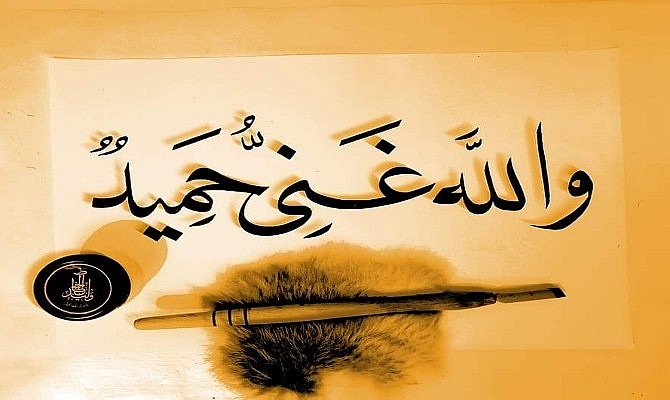 والله غَنِيٌّ حَمِيدٌ